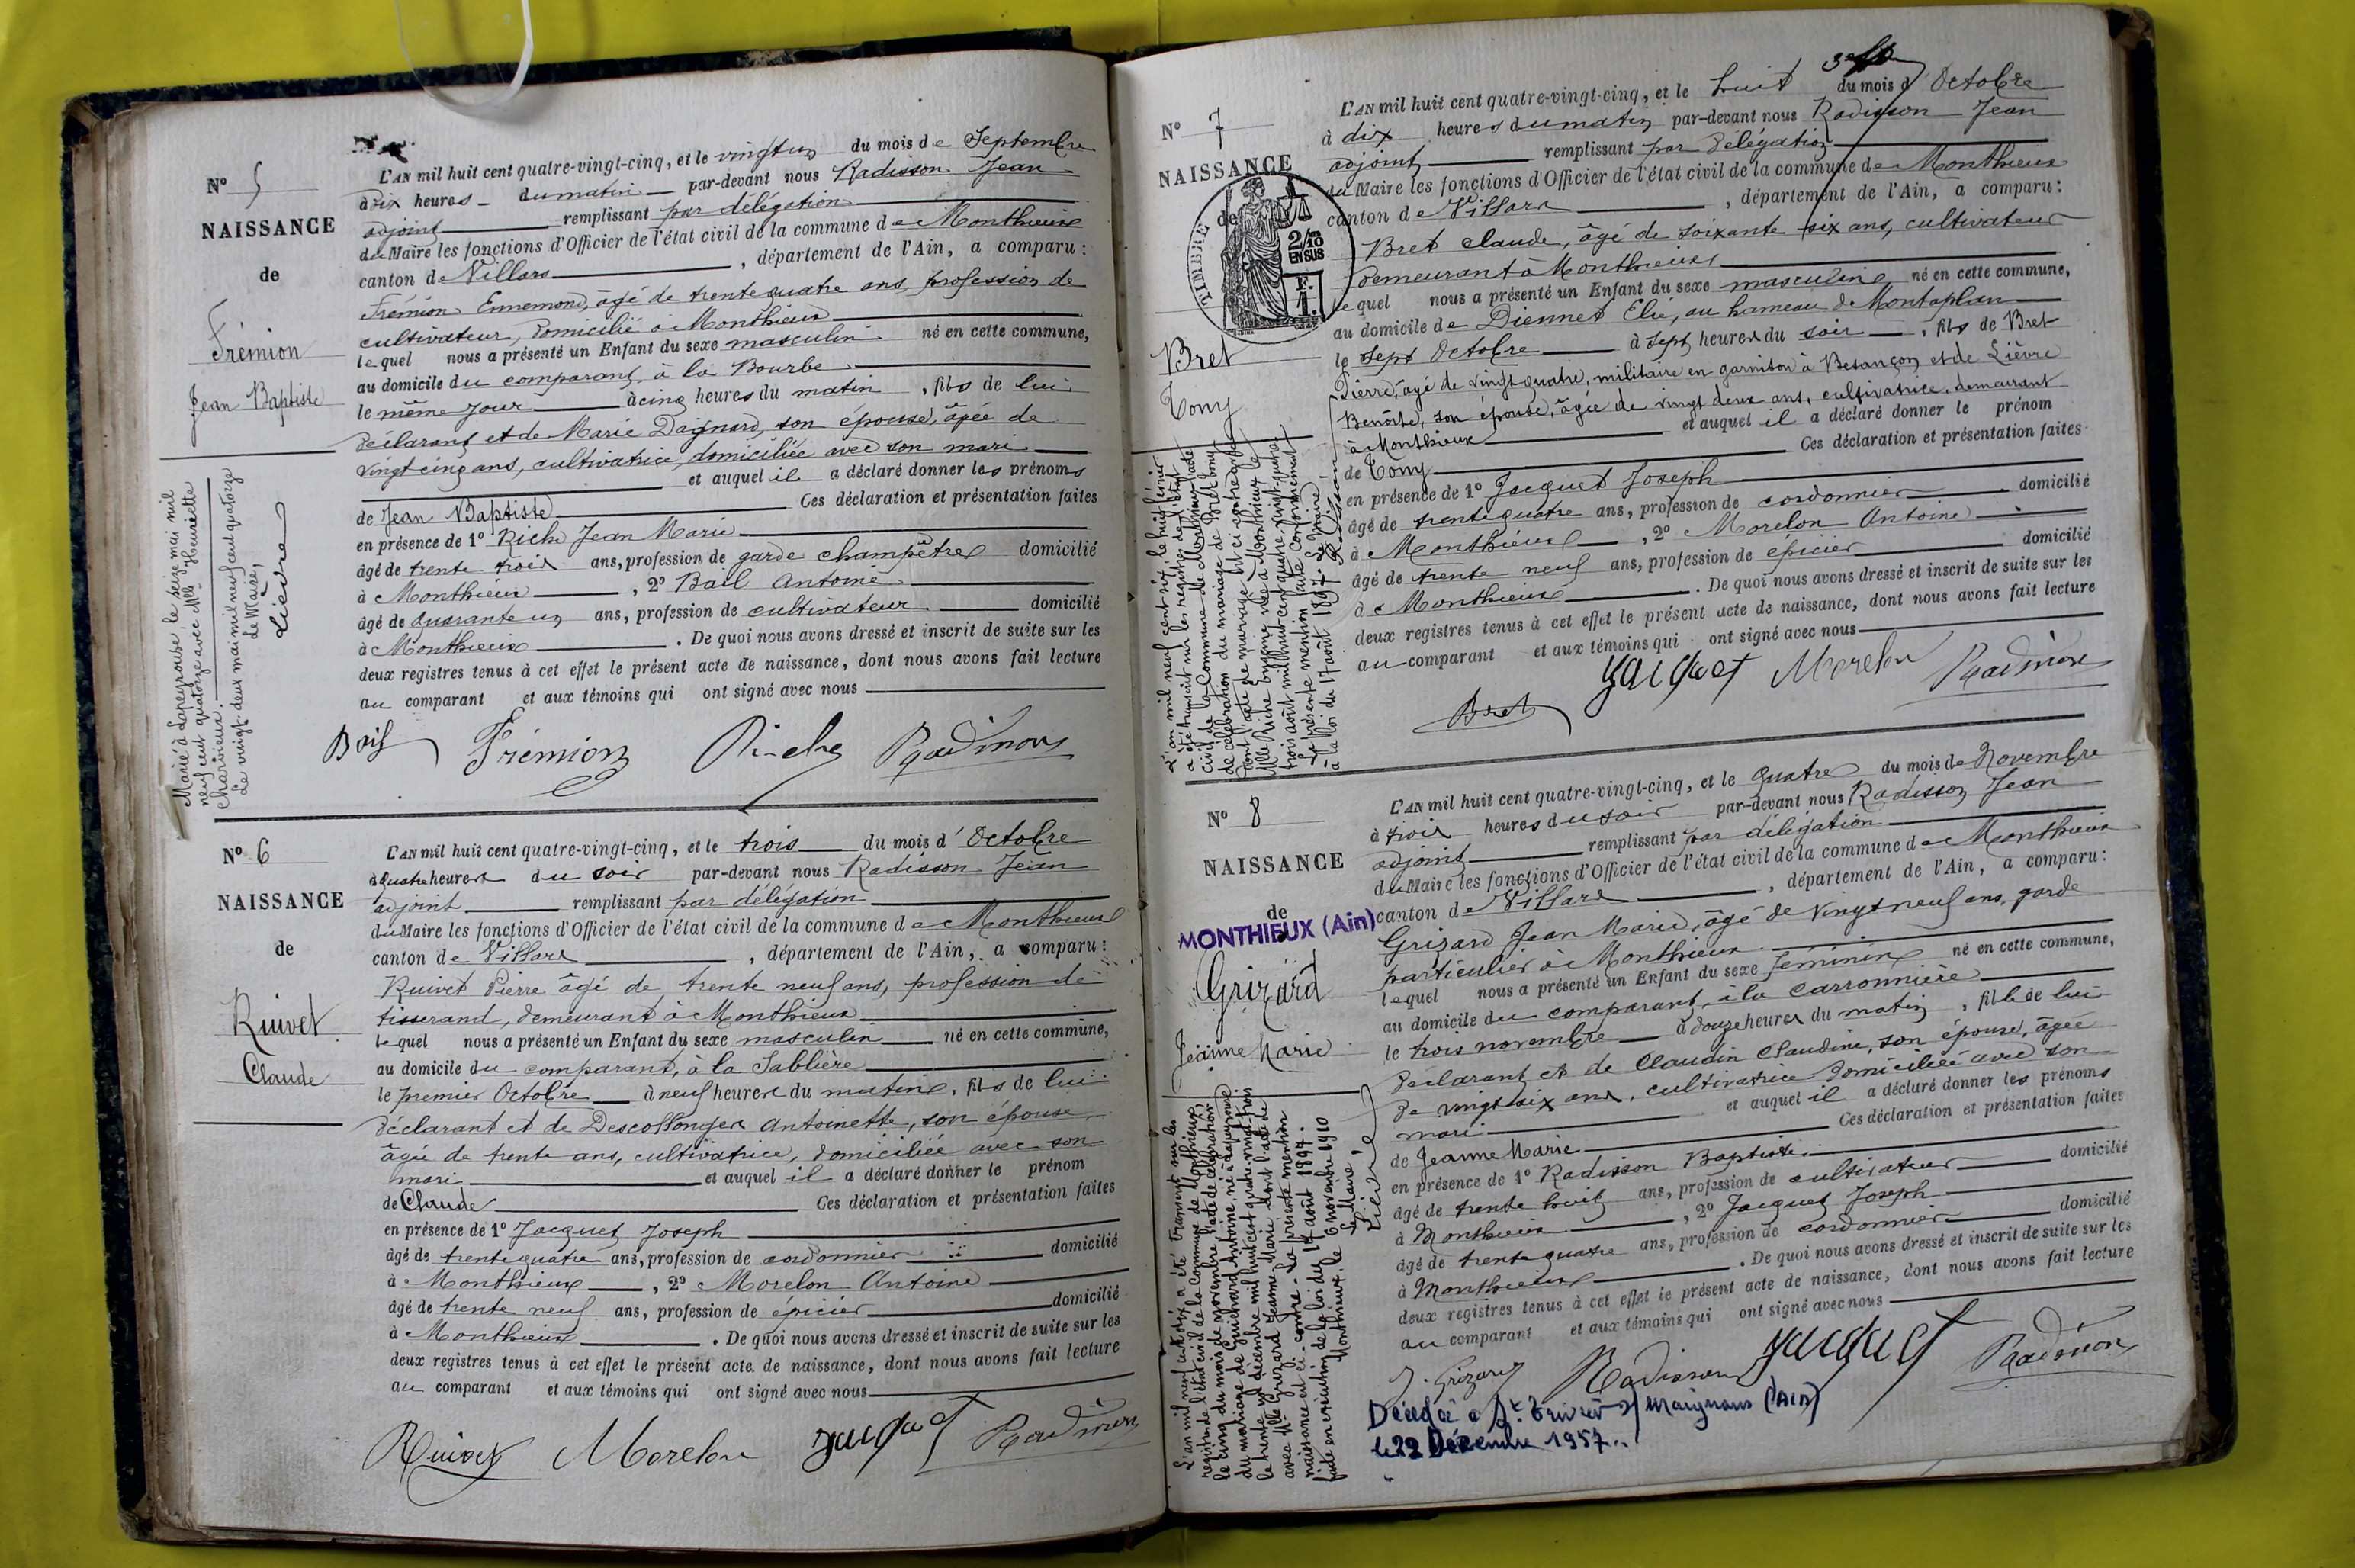 N° 5
NAISSANCE
de
Frémion
Jean Baptiste
Marié à Lapeyrouse le seize mai mil
neuf cent quatorze avec Mlle Henriette
Charvieux.
Le vingt-deux mai mil neuf cent quatorze
Le Maire,
Lièvre
L'AN mil huit cent quatre-vingt-cinq, et le vingt un du mois de Septembre
à dix heures du matin par-devant nous Radisson Jean
adjoint remplissant par délégation
du Maire les fonctions d'Officier de l'état civil de la commune de Monthieux
canton de Villars, département de l'Ain, a comparu :
Frémion Ennemond, âgé de trente quatre ans, profession de
cultivateur, domicilié à Monthieux
lequel nous a présenté un Enfant du sexe masculin né en cette commune,
au domicile du comparant, à la Bourbe
le même jour à cinq heures du matin, fils de lui
déclarant et de Marie Dagnard, son épouse, âgée de
vingt cinq ans, cultivatrice, domiciliée avec son mari
et auquel il a déclaré donner les prénoms
de Jean Baptiste Ces déclaration et présentation faites
en présence de 1° Riche Jean Marie
âgé de trente trois ans, profession de garde champêtre domicilié
à Monthieux, 2° Bail Antoine
âgé de quarante un ans, profession de cultivateur domicilié
à Monthieux. De quoi nous avons dressé et inscrit de suite sur les
deux registres tenus à cet effet le présent acte de naissance, dont nous avons fait lecture
au comparant et aux témoins qui ont signé avec nous
Bail Frémion Riche Radisson
N° 6
NAISSANCE
de
Ruivet
Claude
L'AN mil huit cent quatre-vingt-cinq, et le trois du mois d'Octobre
à quatre heures du soir par-devant nous Radisson Jean
adjoint remplissant par délégation
du Maire les fonctions d'Officier de l'état civil de la commune de Monthieux
canton de Villars, département de l'Ain, a comparu :
Ruivet Pierre âgé de trente neuf ans, profession de
tisserand, demeurant à Monthieux
lequel nous a présenté un Enfant du sexe masculin né en cette commune,
au domicile du comparant, à la Sablière
le premier Octobre à neuf heures du matin, fils de lui
déclarant et de Descollonges Antoinette, son épouse
âgée de trente ans, cultivatrice, domiciliée avec son
mari et auquel il a déclaré donner le prénom
de Claude Ces déclaration et présentation faites
en présence de 1° Jacquet Joseph
âgé de trente quatre ans, profession de cordonnier domicilié
à Monthieux, 2° Morelon Antoine
âgé de trente neuf ans, profession de épicier domicilié
à Monthieux. De quoi nous avons dressé et inscrit de suite sur les
deux registres tenus à cet effet le présent acte de naissance, dont nous avons fait lecture
au comparant et aux témoins qui ont signé avec nous
Ruivet Morelon Jacquet Radisson
N° 7
NAISSANCE
de
TIMBRE
2/10
EN SUS
F.
1.
Bret
Tony
L'an mil neuf cent six le huit
a été transcrit sur les registres de l'état
civil de la Commune de Monthieux l'acte
de célébration du mariage de Bret Tony
dont l'acte de naissance est ci contre avec
Mlle Riche née à Monthieux le
trois août mil huit cent quatre vingt-quatre
La présente mention faite conformément
à la loi du 17 août 1897 Le Maire,
Radisson
L'AN mil huit cent quatre-vingt-cinq, et le huit du mois d'Octobre
à dix heures du matin par-devant nous Radisson Jean
adjoint remplissant par délégation
du Maire les fonctions d'Officier de l'état civil de la commune de Monthieux
canton de Villars, département de l'Ain, a comparu :
Bret Claude, âgé de soixante six ans, cultivateur
demeurant à Monthieux
lequel nous a présenté un Enfant du sexe masculin né en cette commune,
au domicile de Diennet Elie, au hameau de Montaplan
le sept Octobre à sept heures du soir, fils de Bret
Pierre, âgé de vingt quatre, militaire en garnison à Besançon et de Lièvre
Benoîte, son épouse, âgée de vingt deux ans, cultivatrice, demeurant
à Monthieux et auquel il a déclaré donner le prénom
de Tony Ces déclaration et présentation faites
en présence de 1° Jacquet Joseph
âgé de trente quatre ans, profession de cordonnier domicilié
à Monthieux, 2° Morelon Antoine
âgé de trente neuf ans, profession de épicier domicilié
à Monthieux. De quoi nous avons dressé et inscrit de suite sur les
deux registres tenus à cet effet le présent acte de naissance, dont nous avons fait lecture
au comparant et aux témoins qui ont signé avec nous
Bret Jacquet Morelon Radisson
N° 8
NAISSANCE
de
MONTHIEUX (Ain)
Grizard
Jeanne Marie
L'an mil neuf cent dix a été transcrit sur les
registres de l'état civil de la Commune de Monthieux,
le cinq du mois de novembre l'acte de célébration
du mariage de Guichard Antoine, né à Lapeyrouse
le trente un décembre mil huit cent quatre-vingt-trois
avec Mlle Grizard Jeanne Marie dont l'acte de
naissance est ci-contre. La présente mention
faite en exécution de la loi du 17 août 1897.
Monthieux, le 6 novembre 1910
Le Maire,
Lièvre
L'AN mil huit cent quatre-vingt-cinq, et le quatre du mois de Novembre
à trois heures du soir par-devant nous Radisson Jean
adjoint remplissant par délégation
du Maire les fonctions d'Officier de l'état civil de la commune de Monthieux
canton de Villars, département de l'Ain, a comparu :
Grizard Jean Marie, âgé de vingt neuf ans, garde
particulier à Monthieux
lequel nous a présenté un Enfant du sexe féminin né en cette commune,
au domicile du comparant, à la Carronnière
le trois novembre à douze heures du matin, fille de lui
déclarant et de Claudin Claudine, son épouse, âgée
de vingt six ans, cultivatrice domiciliée avec son
mari et auquel il a déclaré donner les prénoms
de Jeanne Marie Ces déclaration et présentation faites
en présence de 1° Radisson Baptiste
âgé de trente huit ans, profession de cultivateur domicilié
à Monthieux, 2° Jacquet Joseph
âgé de trente quatre ans, profession de cordonnier domicilié
à Monthieux. De quoi nous avons dressé et inscrit de suite sur les
deux registres tenus à cet effet le présent acte de naissance, dont nous avons fait lecture
au comparant et aux témoins qui ont signé avec nous
J. Grizard Radisson Jacquet Radisson
Décédée à St Trivier s/ Moignans (Ain)
le 22 Décembre 1957.